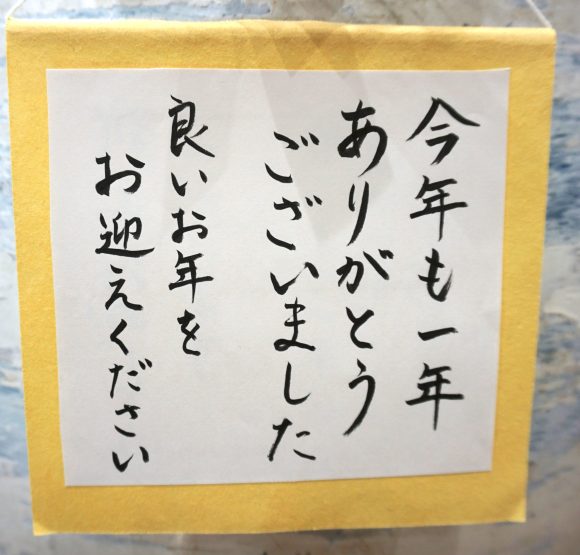 今年も一年
ありがとう
ございました
良いお年を
お迎えください